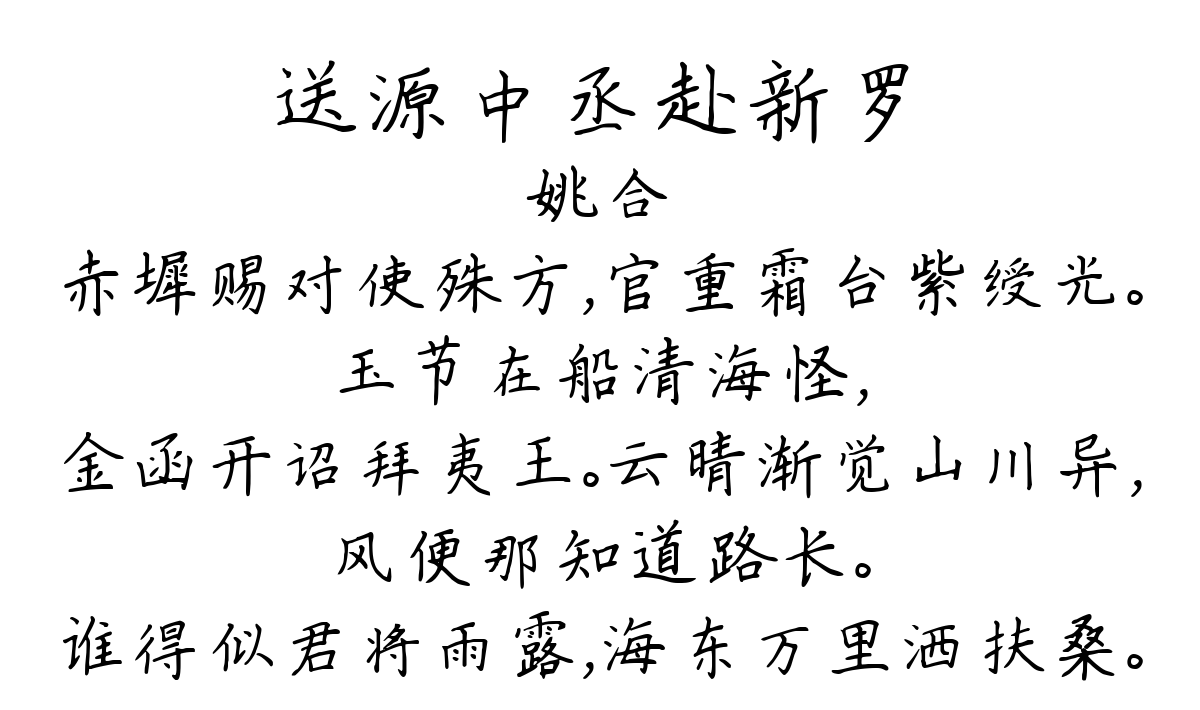 送源中丞赴新罗
姚合
赤墀赐对使殊方,官重霜台紫绶光。
玉节在船清海怪,
金函开诏拜夷王。云晴渐觉山川异,
风便那知道路长。
谁得似君将雨露,海东万里洒扶桑。